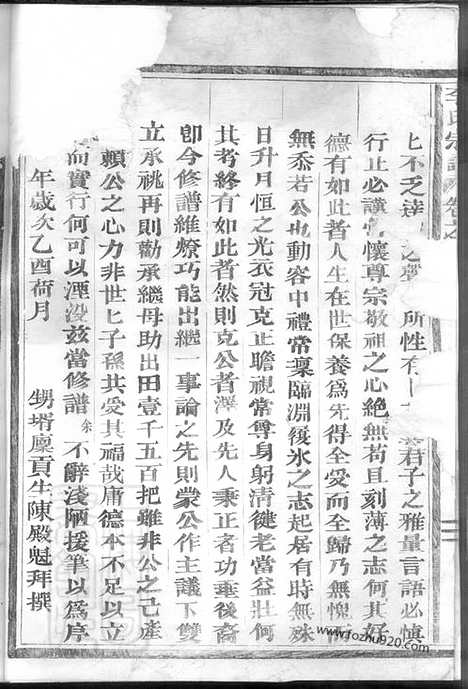 李氏宗譜卷之
匕不乏達之所性有君子之雅量言語必慎
行止必謹常懷尊宗敬祖之心絶無苟且刻薄之志何其好
德有如此者人生在世保養爲先得全受而全歸乃無愧而
無忝若公也動容中禮常稟臨淵履氷之志起居有時無殊
日升月恒之光衣冠克正瞻視常尊身躬清健老當益壯何
其考終有如此者然則克公者澤及先人秉正者功垂後裔
卽今修譜維燎巧能出繼一事論之先則蒙公作主議下雙
立承祧再則勸承繼母助出田壹千五百把雖非公之己產
賴公之心力非世匕子孫共受其福哉庸德本不足以立
而實行何可以湮没兹當修譜余不辭淺陋援筆以爲序
年歲次乙酉荷月
甥壻廩貢生陳殿魁拜撰
www.fozhu920.com